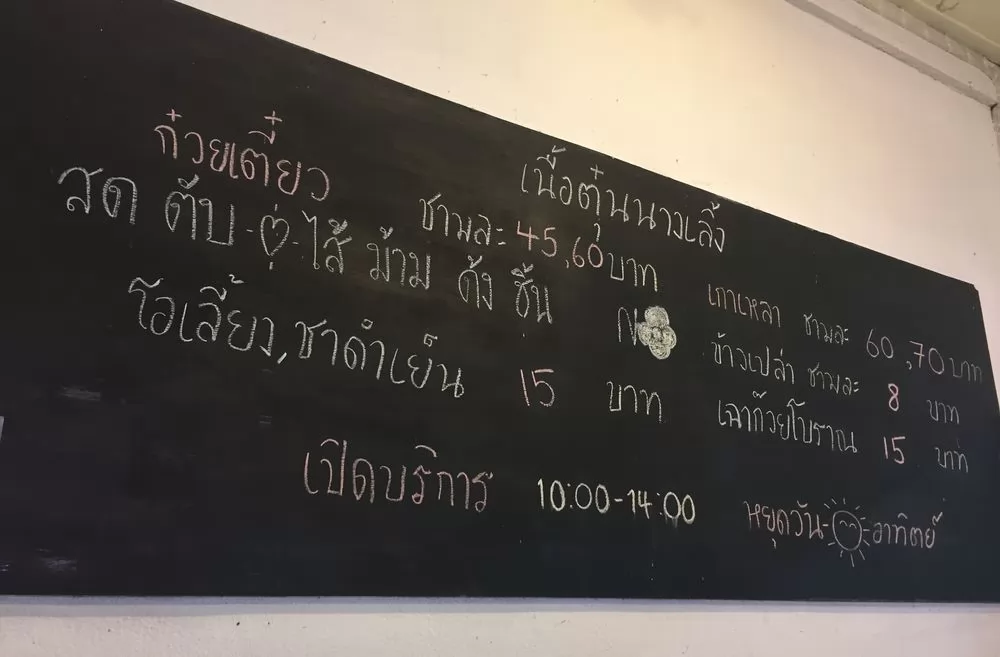 เนื้อตุ๋นนางเลิ้ง
ก๋วยเตี๋ยว ชามละ 45,60 บาท
สด ตับ ไส้ ม้าม ดั้ง ชิ้น
โอเลี้ยง, ชาดำเย็น 15 บาท
เกาเหลา ชามละ 60,70 บาท
ข้าวเปล่า ชามละ 8 บาท
เฉาก๊วยโบราณ 15 บาท
เปิดบริการ 10:00-14:00 หยุดวันอาทิตย์